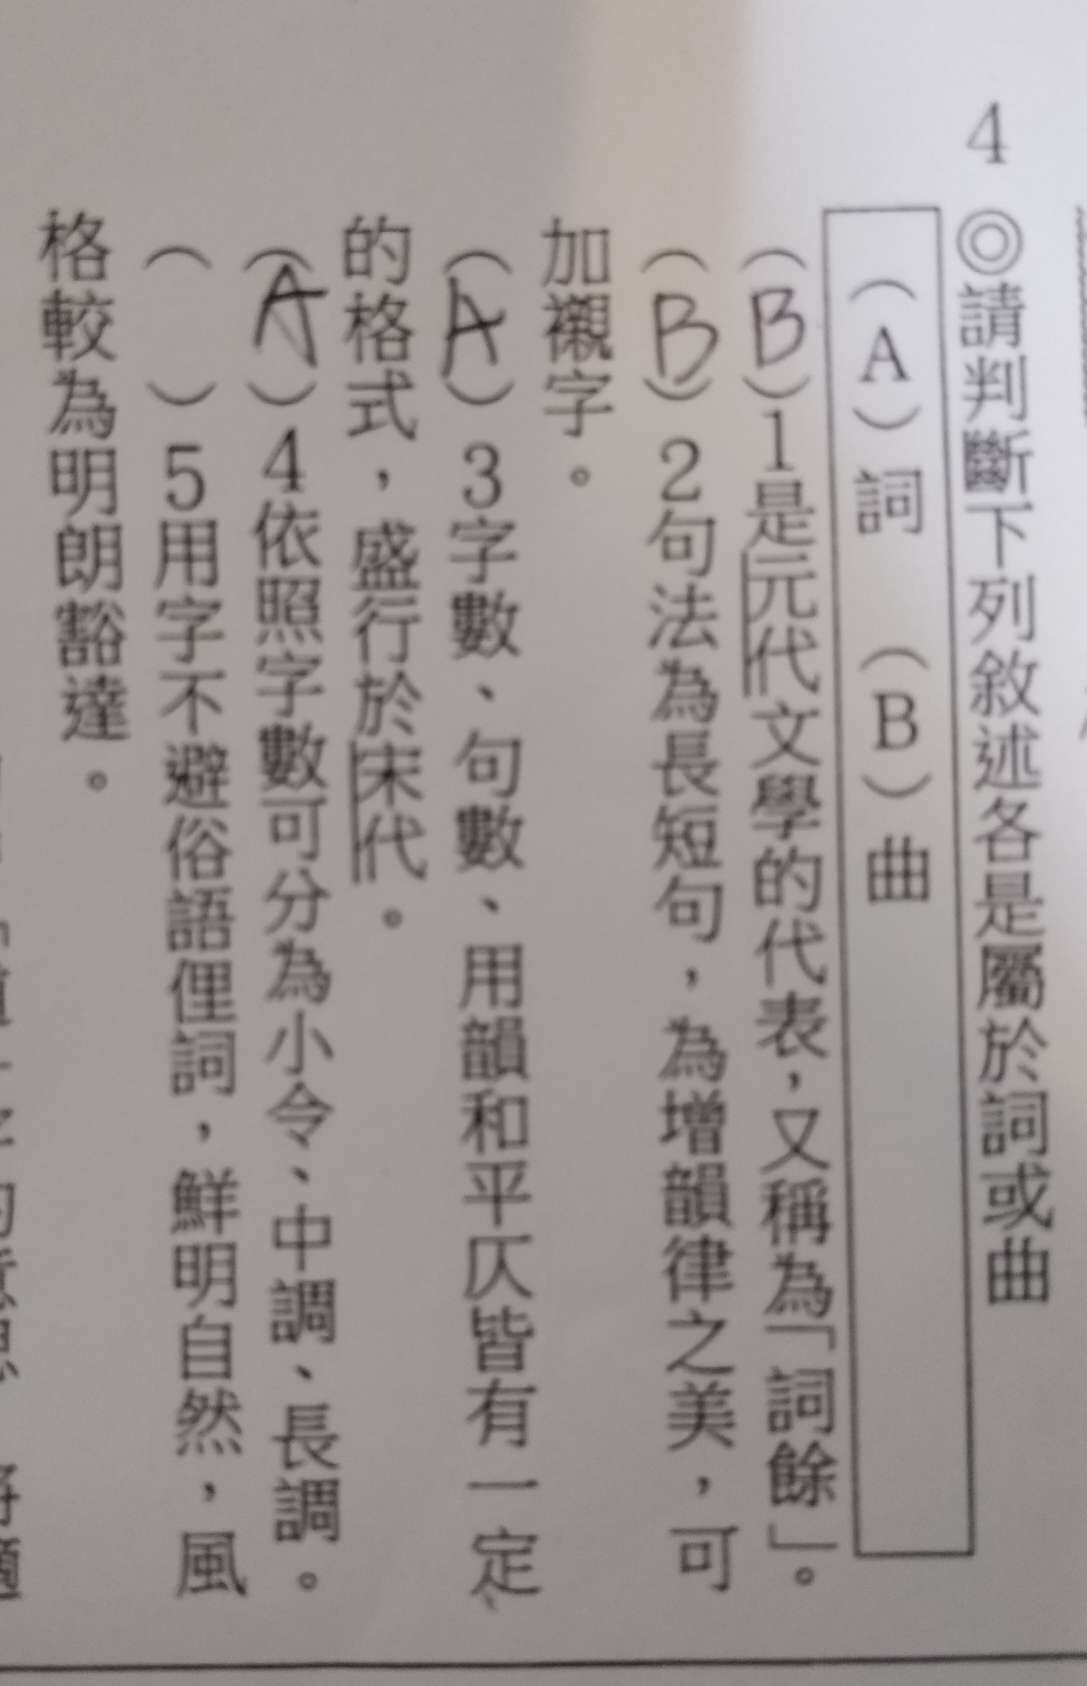 4 ◎請判斷下列敘述各是屬於詞或曲
（A）詞　（B）曲
（B）1是元代文學的代表，又稱為「詞餘」。
（B）2句法為長短句，為增韻律之美，可
加襯字。
（A）3字數、句數、用韻和平仄皆有一定
的格式，盛行於宋代。
（A）4依照字數可分為小令、中調、長調。
（　）5用字不避俗語俚詞，鮮明自然，風
格較為明朗豁達。